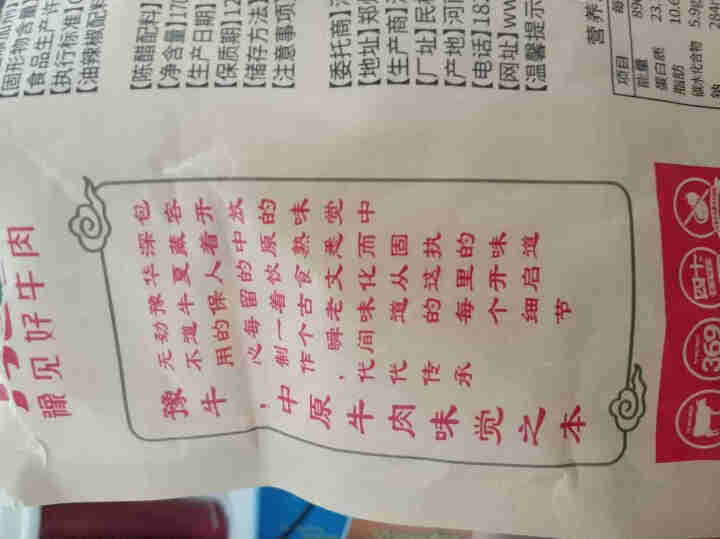 固形物含量】
【食品生产许
【执行标准】
【油辣椒配料
【陈醋配料】
【净含量】170
【生产日期】
【保质期】12
【储存方法】
【注意事项
【委托商】
【地址】郑
【生产商】
【厂址】民
【产地】河
【电话】18
【网址】ww
【温馨提示
营养
项目 每
能量 896
蛋白质 23.
脂肪 10.6
碳水化合物 5.9g
钠 284
豫见好牛肉
豫牛，中原牛肉味觉之本
无不用心制作，代代传承
劲道的每一个瞬间
豫牛保留着古老味道的每个细节
华夏人的饮食文化从这里开启
深藏着中原熟悉而固执的味道
包容开放的味觉中
369
四十